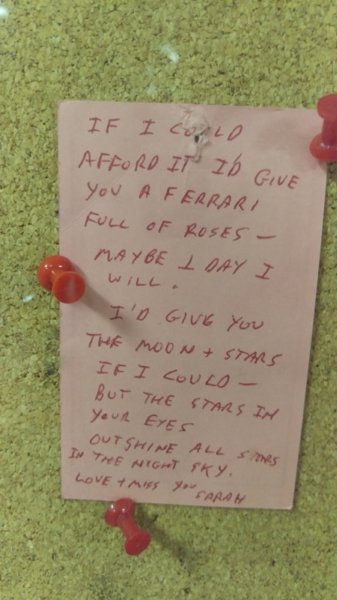 IF I COULD
AFFORD IT I'D GIVE
YOU A FERRARI
FULL OF ROSES —
MAYBE 1 DAY I
WILL.
I'D GIVE YOU
THE MOON + STARS
IF I COULD —
BUT THE STARS IN
YOUR EYES
OUTSHINE ALL STARS
IN THE NIGHT SKY.
LOVE + MISS YOU
SARAH